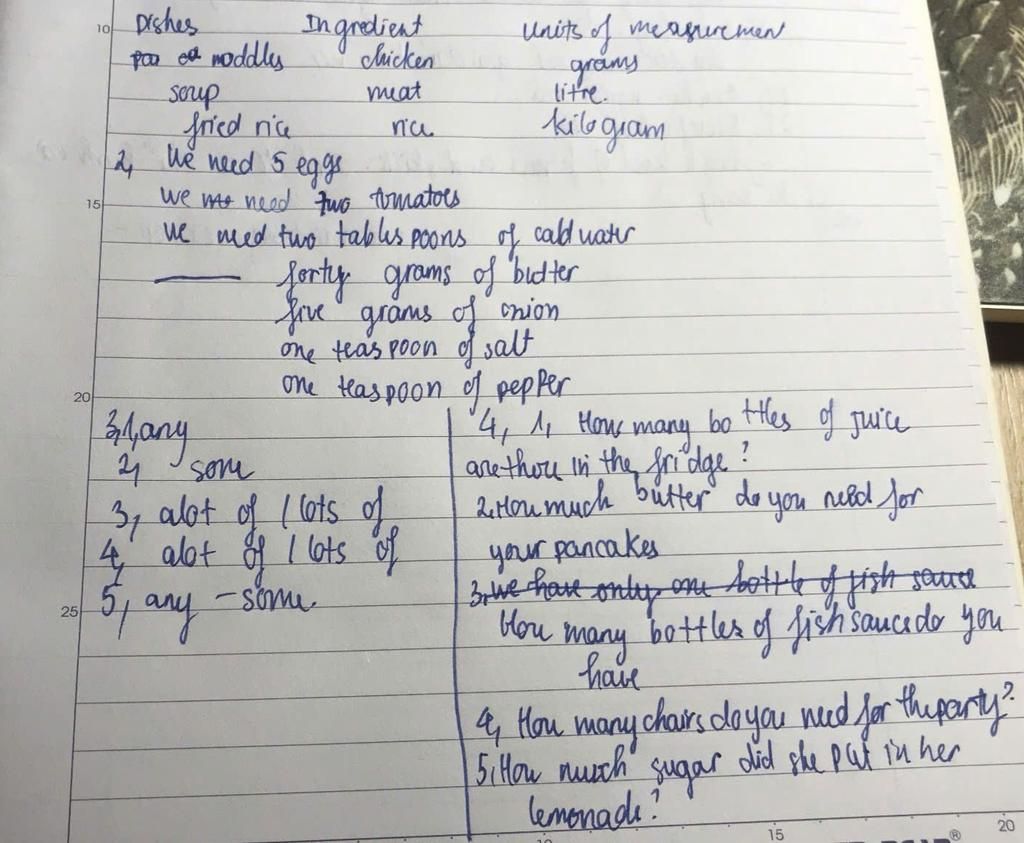 10 Dishes Ingredient Units of measuremen
noddles chicken grams
soup meat litre.
fried rice rice kilogram
2, We need 5 eggs
15 we need two tomatoes
we need two tables poons of cold water
forty grams of butter
five grams of onion
one teaspoon of salt
20 one teaspoon of pepper
3,1, any
2, som
3, alot of / lots of
4, alot of / lots of
25 5, any - some.
4, 1, How many bottles of juice
are in the fridge?
2. How much butter do you need for
your pancakes
3, we have only one bottle of fish sauce
How many bottles of fish sauce do you
have
4, How many chairs do you need for the party?
5, How much sugar did she put in her
lemonade?
15 20
®